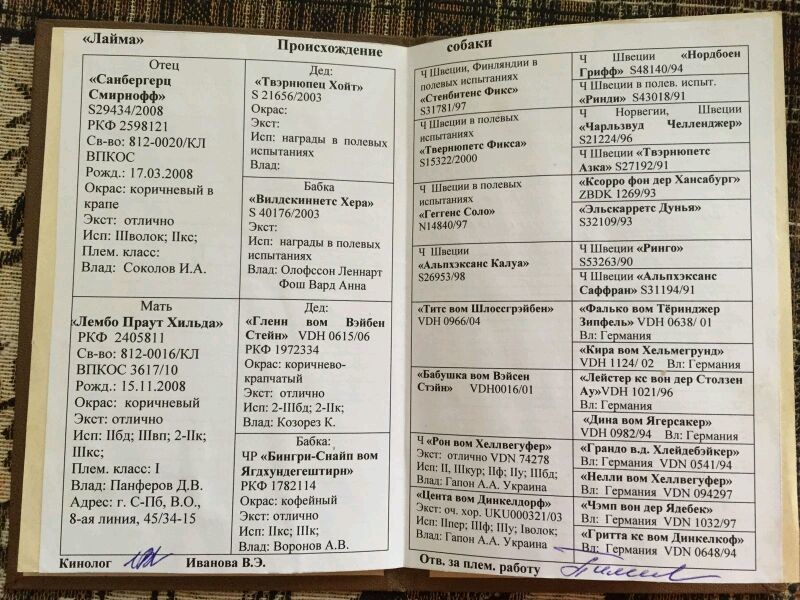 «Лайма» Происхождение собаки
Отец
«Санбергерц
Смирнофф»
S29434/2008
РКФ 2598121
Св-во: 812-0020/КЛ
ВПКОС
Рожд.: 17.03.2008
Окрас: коричневый в
крапе
Экст: отлично
Исп: IIIволок; IIкс;
Плем. класс:
Влад: Соколов И.А.
Мать
«Лембо Праут Хильда»
РКФ 2405811
Св-во: 812-0016/КЛ
ВПКОС 3617/10
Рожд.: 15.11.2008
Окрас: коричневый
Экст: отлично
Исп: IIбд; IIIвп; 2-IIк;
IIIкс;
Плем. класс: I
Влад: Панферов Д.В.
Адрес: г. С-Пб, В.О.,
8-ая линия, 45/34-15
Дед:
«Твэрнюпец Хойт»
S 21656/2003
Окрас:
Экст:
Исп: награды в полевых
испытаниях
Влад:
Бабка
«Вилдскиннетс Хера»
S 40176/2003
Экст:
Исп: награды в полевых
испытаниях
Влад: Олофссон Леннарт
Фош Вард Анна
Дед:
«Гленн вом Вэйбен
Стейн» VDH 0615/06
РКФ 1972334
Окрас: коричнево-
крапчатый
Экст: отлично
Исп: 2-IIIбд; 2-IIк;
Влад: Козорез К.
Бабка:
ЧР «Бингри-Снайп вом
Ягдхундегештирн»
РКФ 1782114
Окрас: кофейный
Экст: отлично
Исп: IIкс; IIIк;
Влад: Воронов А.В.
Ч Швеции, Финляндии в
полевых испытаниях
«Стенбитенс Фикс»
S31781/97
Ч Швеции в полевых
испытаниях
«Твернюпетс Фикса»
S15322/2000
Ч Швеции в полевых
испытаниях
«Геггенс Соло»
N14840/97
Ч Швеции
«Альпхэксанс Калуа»
S26953/98
«Титс вом Шлоссгрэйбен»
VDH 0966/04
«Бабушка вом Вэйсен
Стэйн» VDH0016/01
Ч «Рон вом Хеллвегуфер»
Экст: отлично VDN 74278
Исп: II, IIIкур; IIф; IIу; IIIбд;
Влад: Гапон А.А. Украина
«Цента вом Динкелдорф»
Экст: оч. хор. UKU000321/03
Исп: IIпер; IIIф; IIIу; Iволок;
Влад: Гапон А.А. Украина
Ч Швеции «Нордбоен
Грифф» S48140/94
Ч Швеции в полев. испыт.
«Ринди» S43018/91
Ч Норвегии, Швеции
«Чарльзвуд Челленджер»
S21224/96
Ч Швеции «Твэрнюпетс
Азка» S27192/91
«Ксорро фон дер Хансабург»
ZBDK 1269/93
«Эльскарретс Дунья»
S32109/93
Ч Швеции «Ринго»
S53263/90
Ч Швеции «Альпхэксанс
Саффран» S31194/91
«Фалько вом Тёринджер
Зипфель» VDH 0638/ 01
Вл: Германия
«Кира вом Хельмегрунд»
VDH 1124/ 02 Вл: Германия
«Лейстер кс вон дер Столзен
Ау»VDH 1021/96
Вл: Германия
«Дина вом Ягерсакер»
VDH 0982/94 Вл: Германия
«Грандо в.д. Хлейдебэйкер»
Вл: Германия VDN 0541/94
«Нелли вом Хеллвегуфер»
Вл: Германия VDN 094297
«Чэмп вон дер Ядебек»
Вл: Германия VDN 1032/97
«Гритта кс вом Динкелкоф»
Вл: Германия VDN 0648/94
Кинолог Иванова В.Э.
Отв. за плем. работу